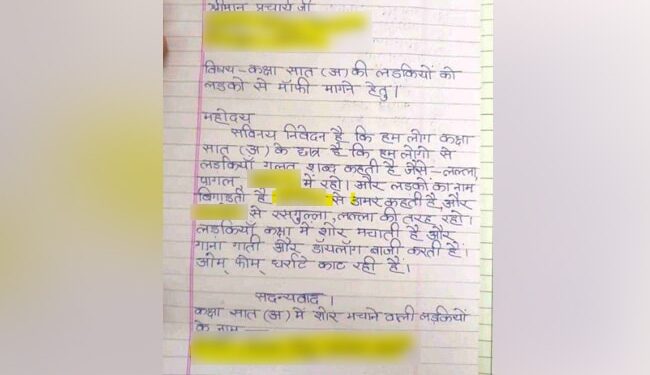 श्रीमान प्रचार्य जी
विषय - कक्षा सात (अ) की लडकियों को
लडको से मॉफी मागने हेतु।
महोदय
सविनय निवेदन है कि हम लोग कक्षा
सात (अ) के छात्र है कि हम लोगो से
लडकियाँ गलत शब्द कहती है जैसे - लल्ला,
पागल, में रहो। और लडकों का नाम
बिगाडती है से डामर कहती है और
से रसगुल्ला, लल्ला की तरह रहो।
लडकियाँ कक्षा में शोर मचाती है और
गाना गाती और डॉयलॉग बाजी करती है।
ओम् फोम् धर्राटे काट रही है।
सदन्यवाद।
कक्षा सात (अ) में शोर मचाने वाली लडकियों
के नाम —